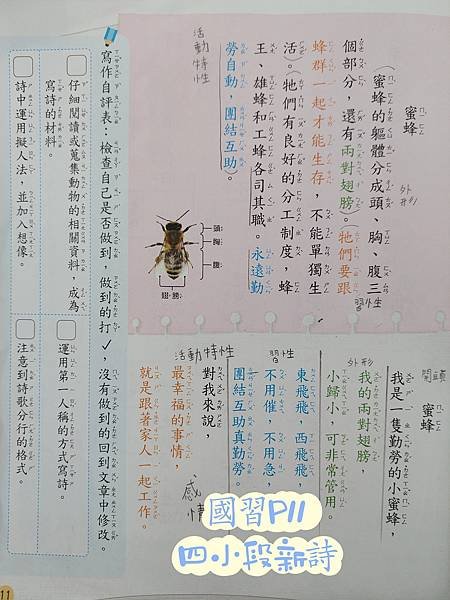 蜜蜂
(蜜蜂的軀體分成頭、胸、腹三
個部分，還有兩對翅膀)。牠們要跟
蜂群一起才能生存，不能單獨生
活。(牠們有良好的分工制度，蜂
王、雄蜂和工蜂各司其職。永遠勤
勞自動，團結互助)。
外形
習性
活動特性
頭
胸
腹
翅膀
開頭
蜜蜂
我是一隻勤勞的小蜜蜂，
外形
我的兩對翅膀，
小歸小，可非常管用。
習性
東飛飛，西飛飛，
不用催，不用急，
團結互助真勤勞
活動特性
對我來說，
最幸福的事情，
就是跟著家人一起工作。
感情
寫作自評表：檢查自己是否做到，做到的打✓，沒有做到的回到文章中修改。
仔細閱讀或蒐集動物的相關資料，成為
寫詩的材料。
詩中運用擬人法，並加入想像。
運用第一人稱的方式寫詩。
注意到詩歌分行的格式。
國習P11
四小段新詩
11